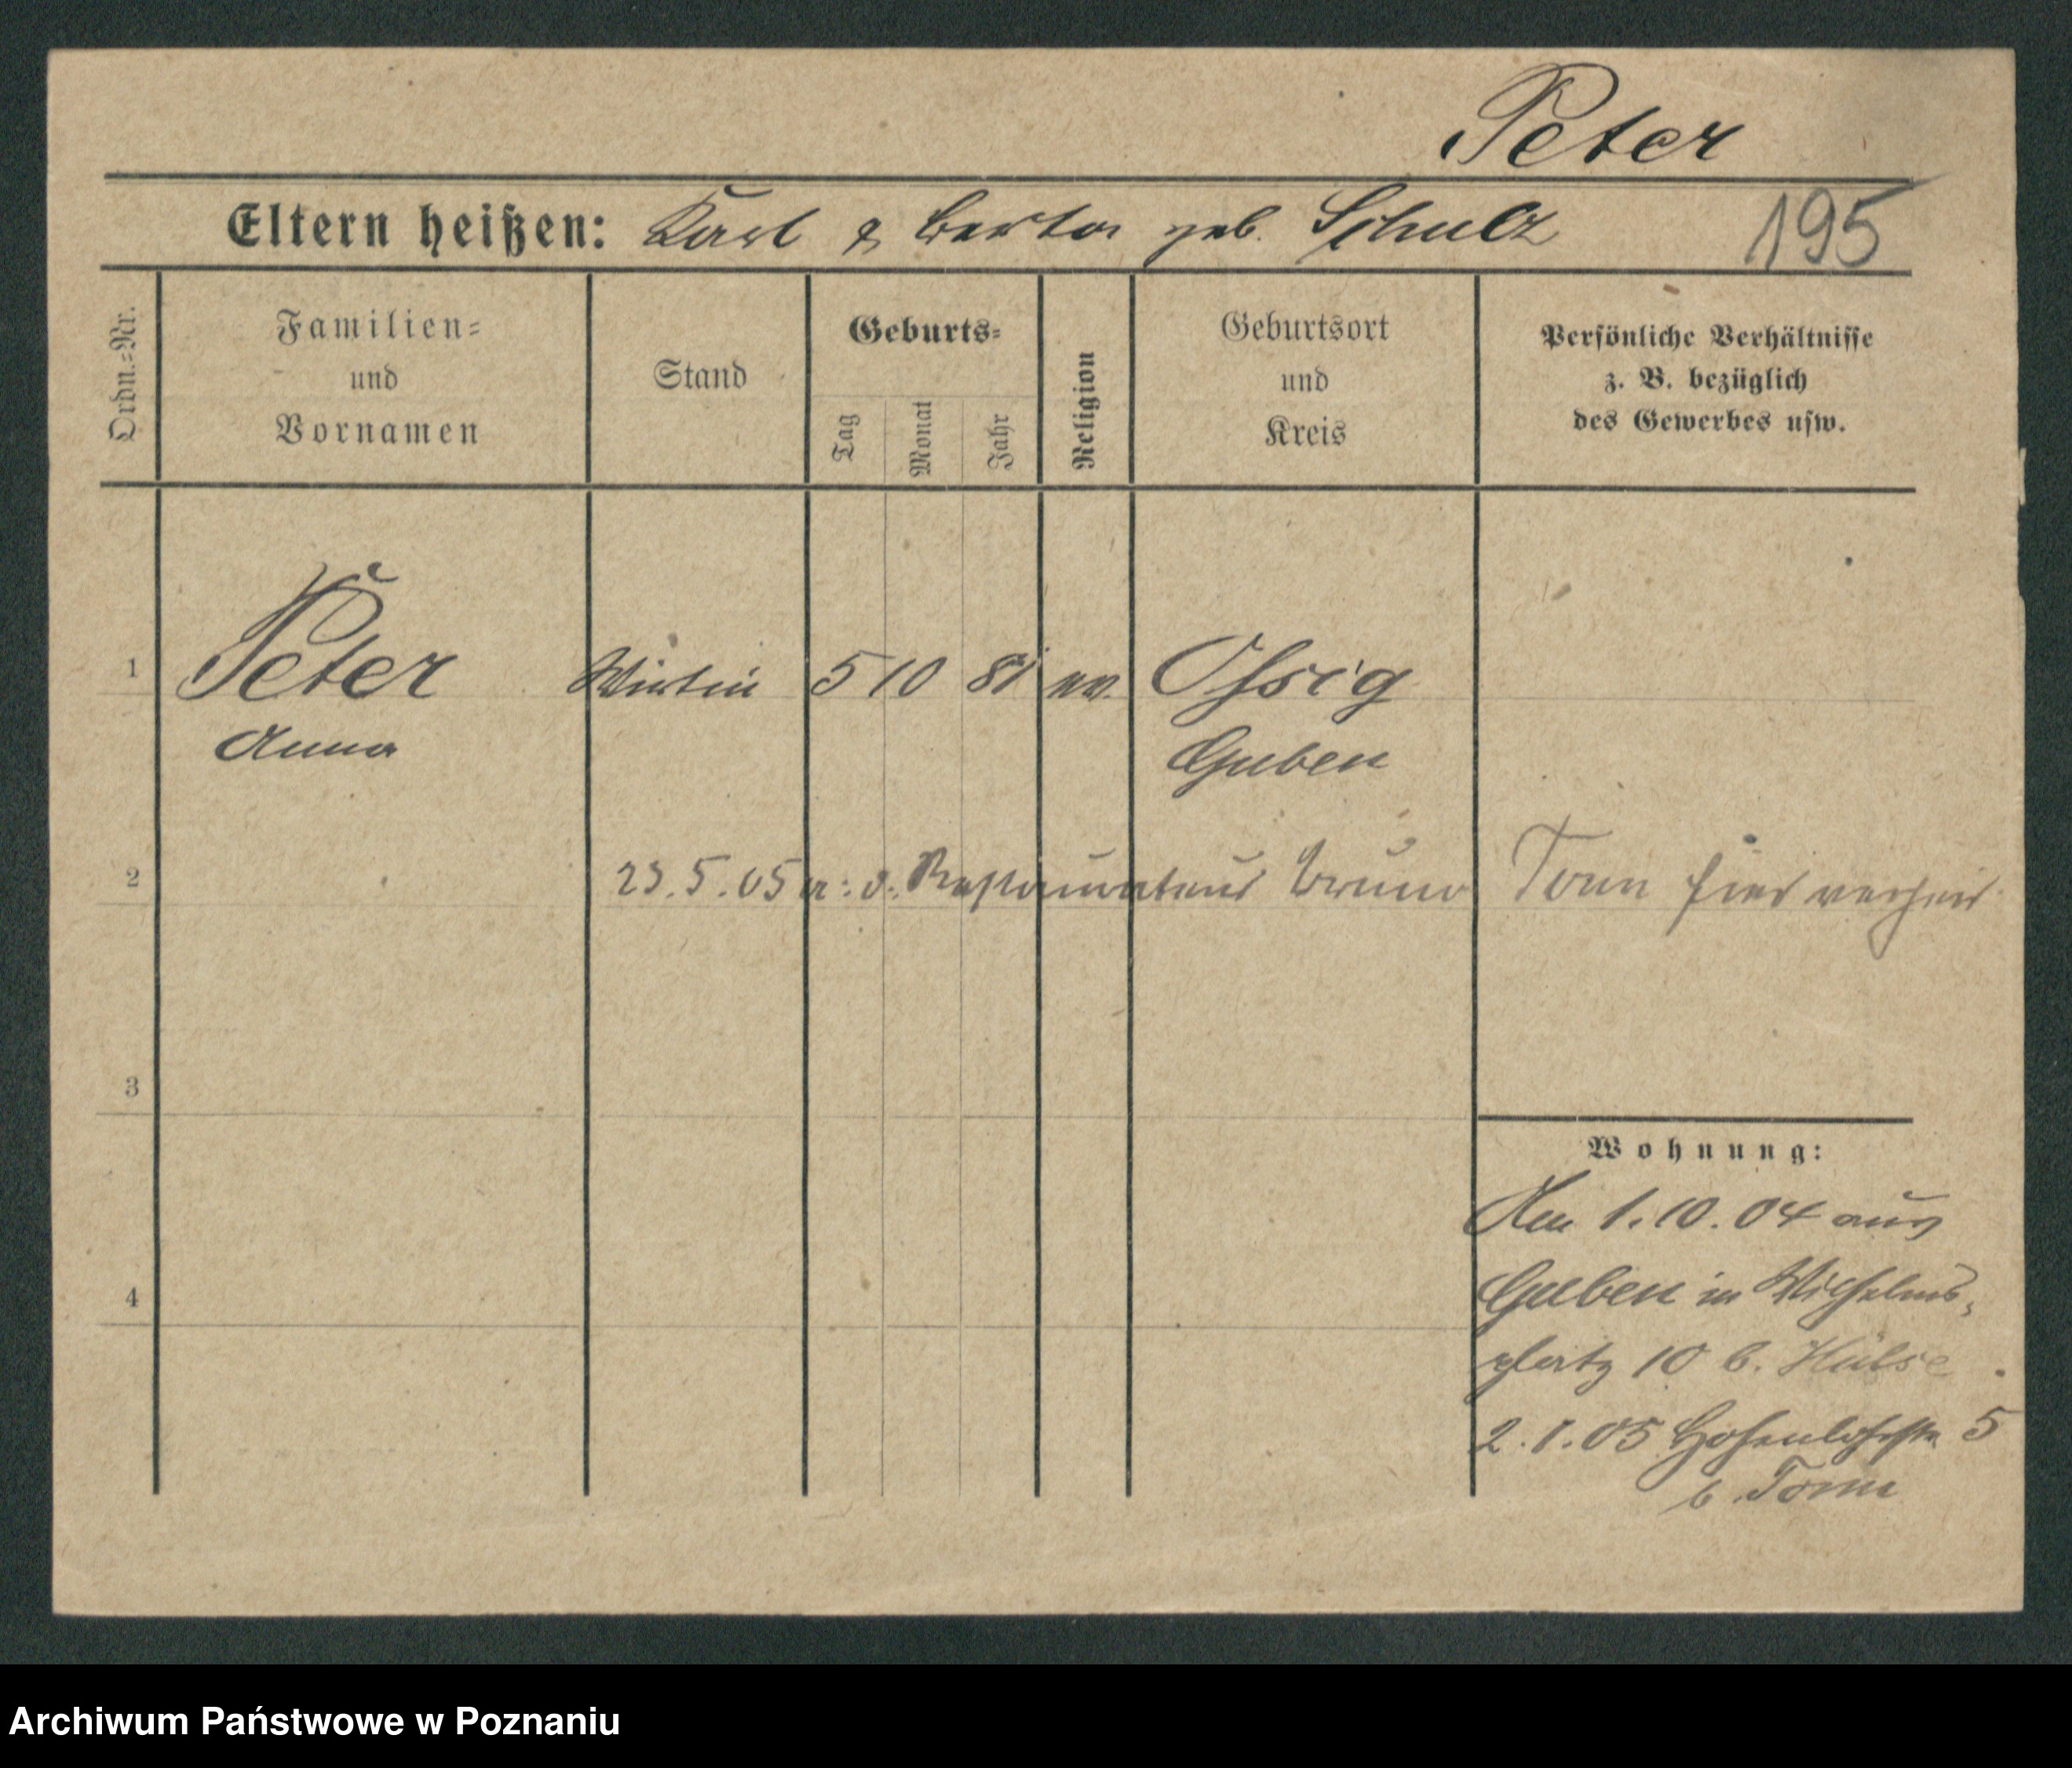 Peter
Eltern heißen: Karl & Berta geb. Schulz 195
Ordn.=Nr.
Familien=
und
Vornamen
Stand
Geburts=
Tag
Monat
Jahr
Religion
Geburtsort
und
Kreis
Persönliche Verhältnisse
z. B. bezüglich
des Gewerbes usw.
1 Peter Wirtin 5 10 81 ev. Ossig
Anna Guben
2 23.5.05 m. d. Restaurateur Bruno Tonn hier verheir
3
Wohnung:
Am 1.10.04 aus
4 Guben in Wilhelms-
platz 10 b. Hülse
2.1.05 Hohenlohestr. 5
b. Tonn
Archiwum Państwowe w Poznaniu